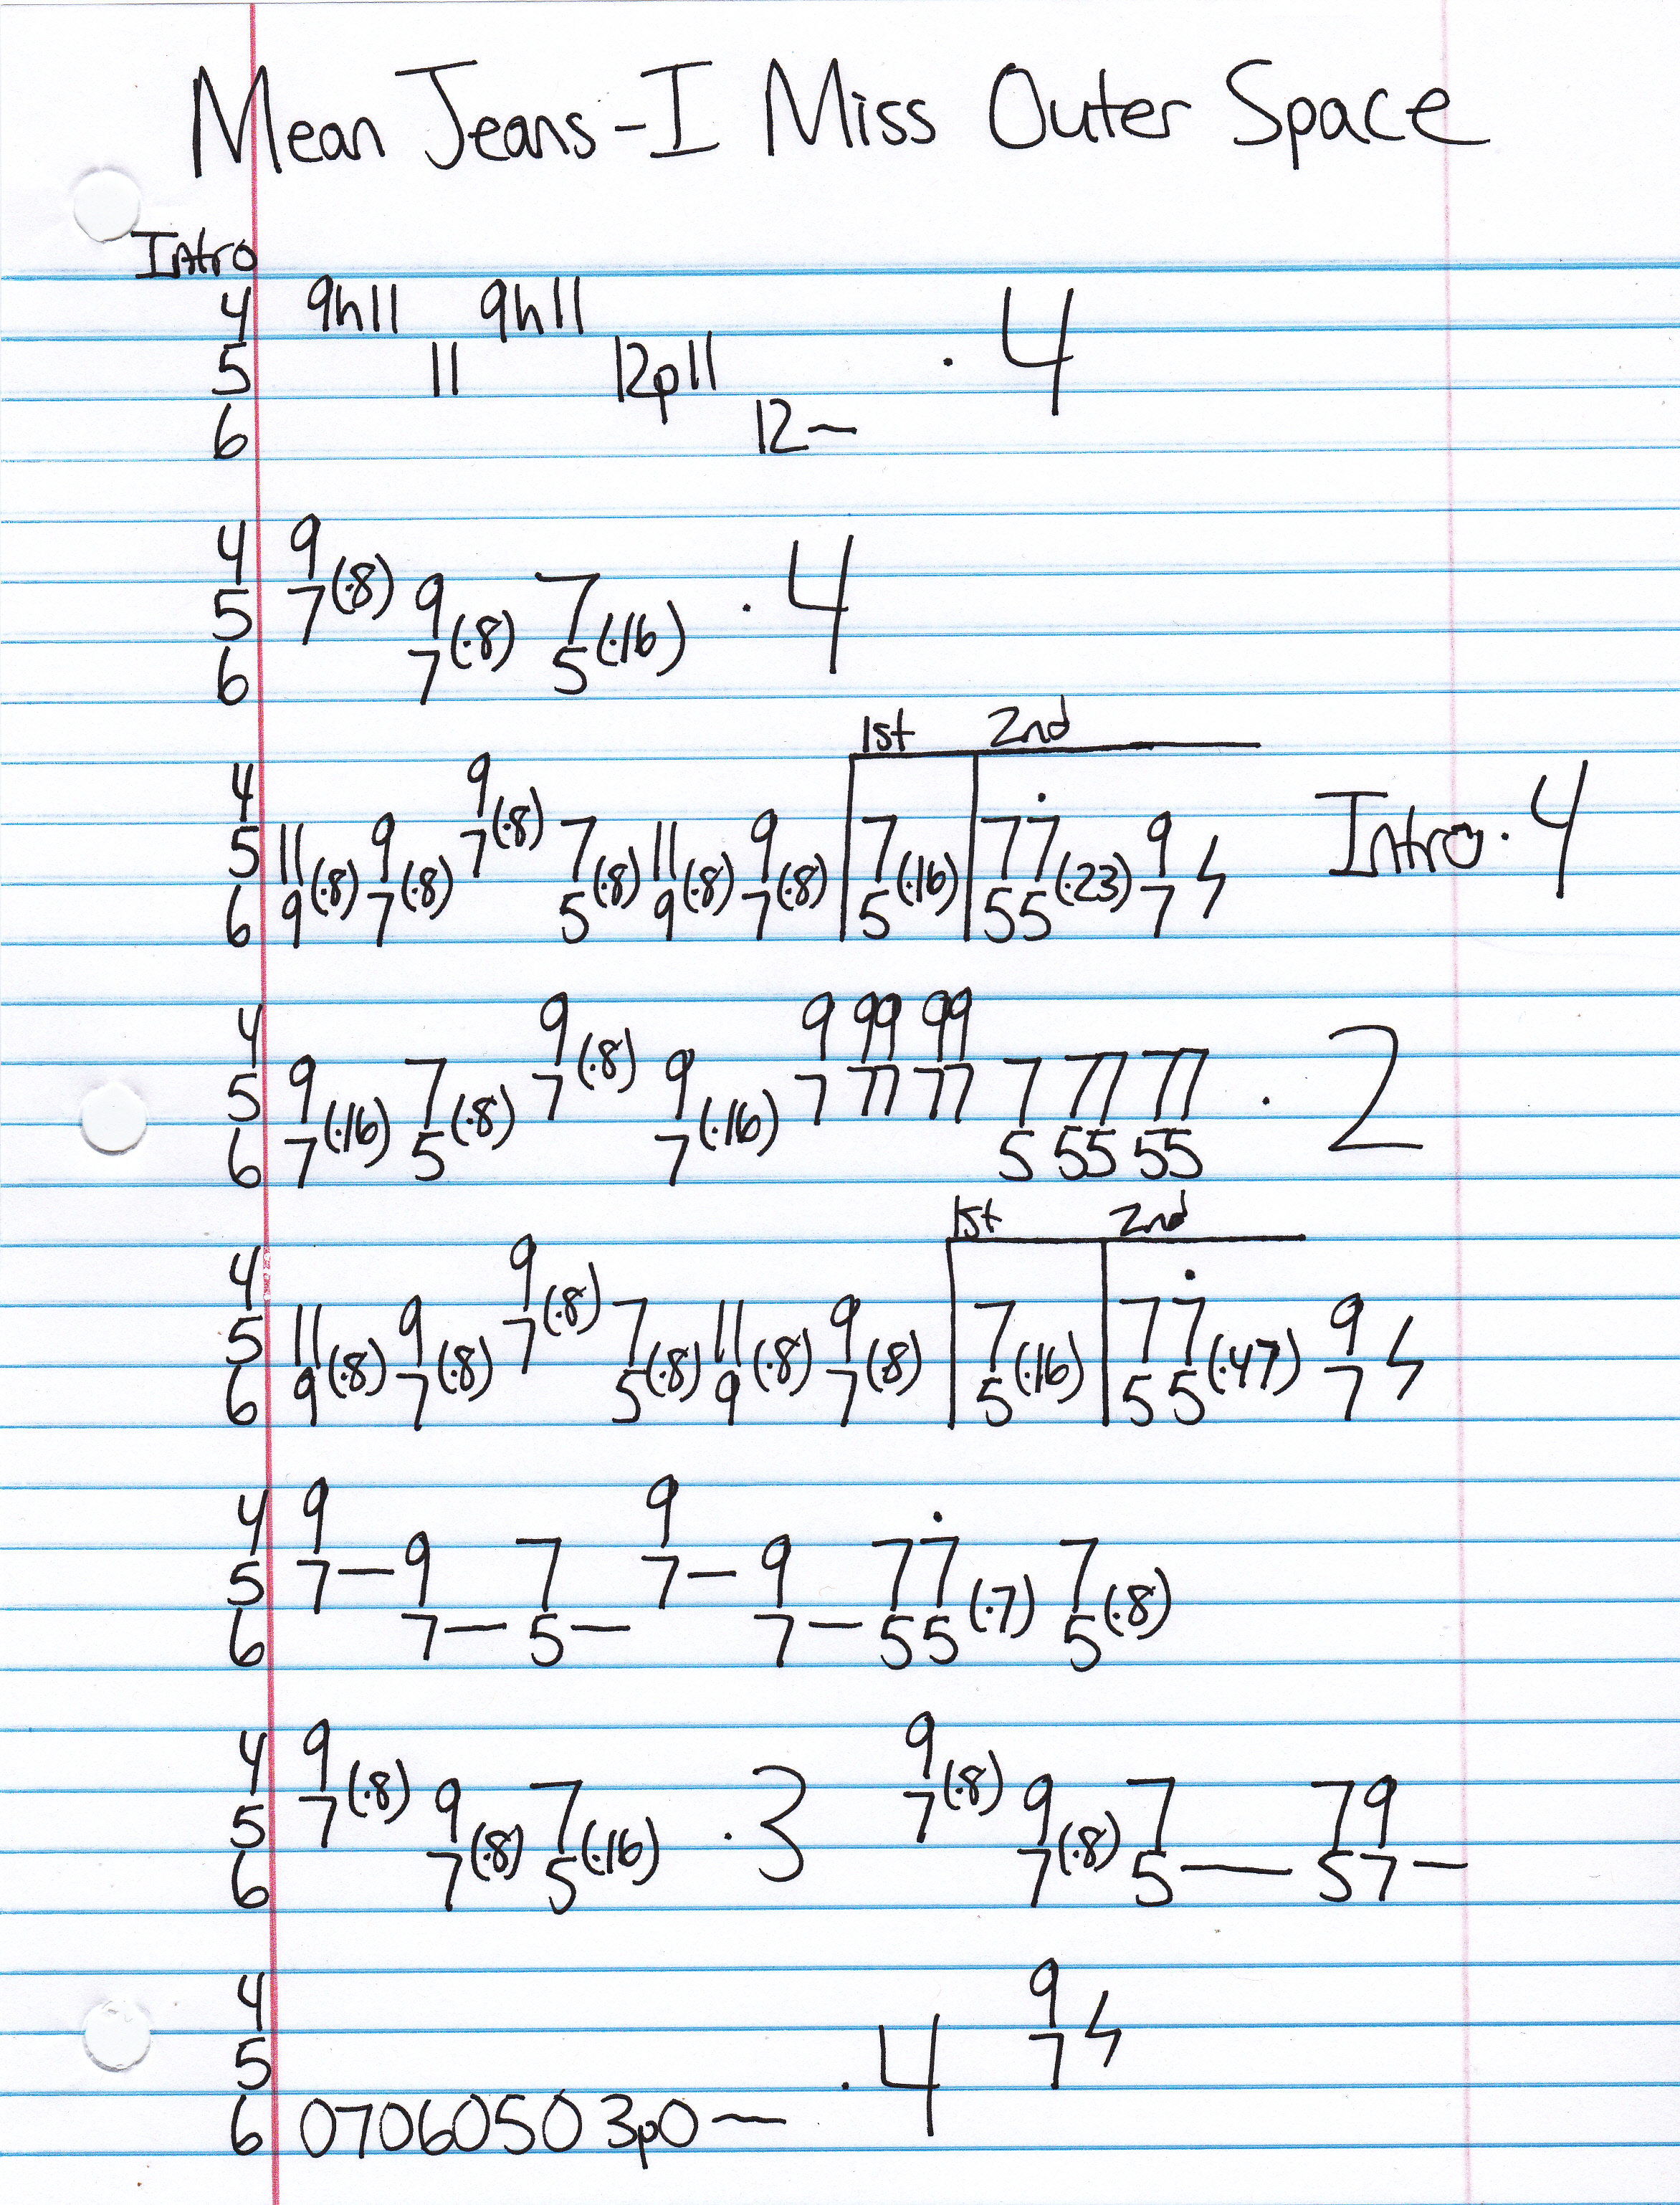 Mean Jeans - I Miss Outer Space
Intro
4 9h11 9h11
5 11 12p11 · 4
6 12~
4 9
5 7(·8) 9 7 · 4
6 7(·8) 5(·16)
1st 2nd
4 9
5 11 9 7(·8) 7 11 9 7 77̇ 9 Intro · 4
6 9(·8) 7(·8) 5(·8) 9(·8) 7(·8) 5(·16) 55(·23) 7 ϟ
4 9 9 99 99
5 9 7 7(·8) 9 7 77 77 7 77 77 · 2
6 7(·16) 5(·8) 7(·16) 5 55 55
1st 2nd
4 9
5 11 9 7(·8) 7 11 9 7 77̇ 9
6 9(·8) 7(·8) 5(·8) 9(·8) 7(·8) 5(·16) 55(·47) 7 ϟ
4 9 9
5 7— 9 7 7— 9 77̇ 7
6 7— 5— 7— 55(·7) 5(·8)
4 9 9
5 7(·8) 9 7 · 3 7(·8) 9 7 79
6 7(·8) 5(·16) 7(·8) 5— 57—
4 9
5 · 4 7 ϟ
6 07060503p0~